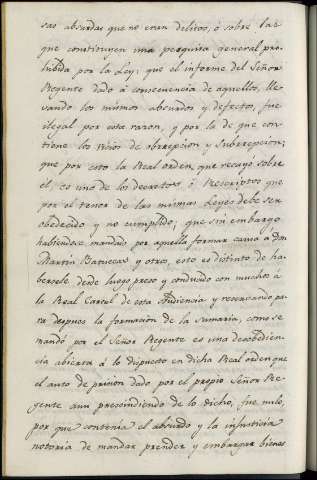 sas absurdas que no eran delitos, ó sobre las
que constituyen una pesquisa general pro-
hibida por la Ley: que el informe del Señor
Regente dado á consecuencia de aquellos, lle-
vando los mismos absurdos y defectos, fue
ilegal por esta razon, y por la de que con-
tiene los vicios de obrrepcion y Subrrepcion;
que por esto la Real orden, que recayó sobre
él, es uno de los decretos ó Rescriptos que
por el tenor de las mismas Leyes debe ser
obedecido y no cumplido; que sin embargo
habiendose mandado por aquella formar causa á Don
Martin Batuecas y otros, esto es distinto de ha-
bersele desde luego preso y conducido con muchos á
la Real Carcel de esta Audiencia y reservando pa-
ra despues la formacion de la Sumaria, como se
mandó por el Señor Regente es una desobedien-
cia abierta á lo dispuesto en dicha Real orden que
el auto de prision dado por el propio Señor Re-
gente aun prescindiendo de lo dicho, fue nulo,
por que contenia el absurdo y la injusticia
notoria de mandar prender y embargar bienes